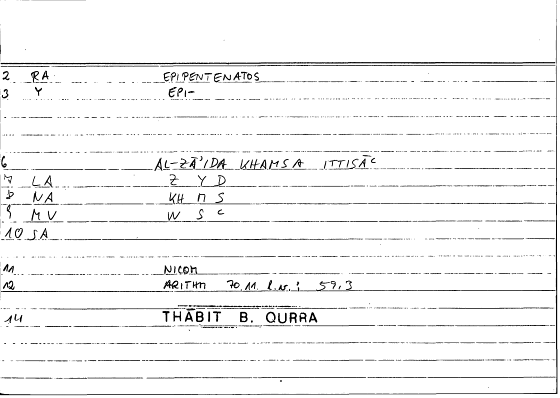 2 RA EPIPENTENATOS
3 Y EPI-
6 AL-ZĀ'IDA KHAMSA ITTISĀC
7 LA Z Y D
8 NA KH M S
9 MV W S C
10 SA
11 NICOM
12 ARITHM 70.11 l.w.: 59,3
14 THĀBIT B. QURRA